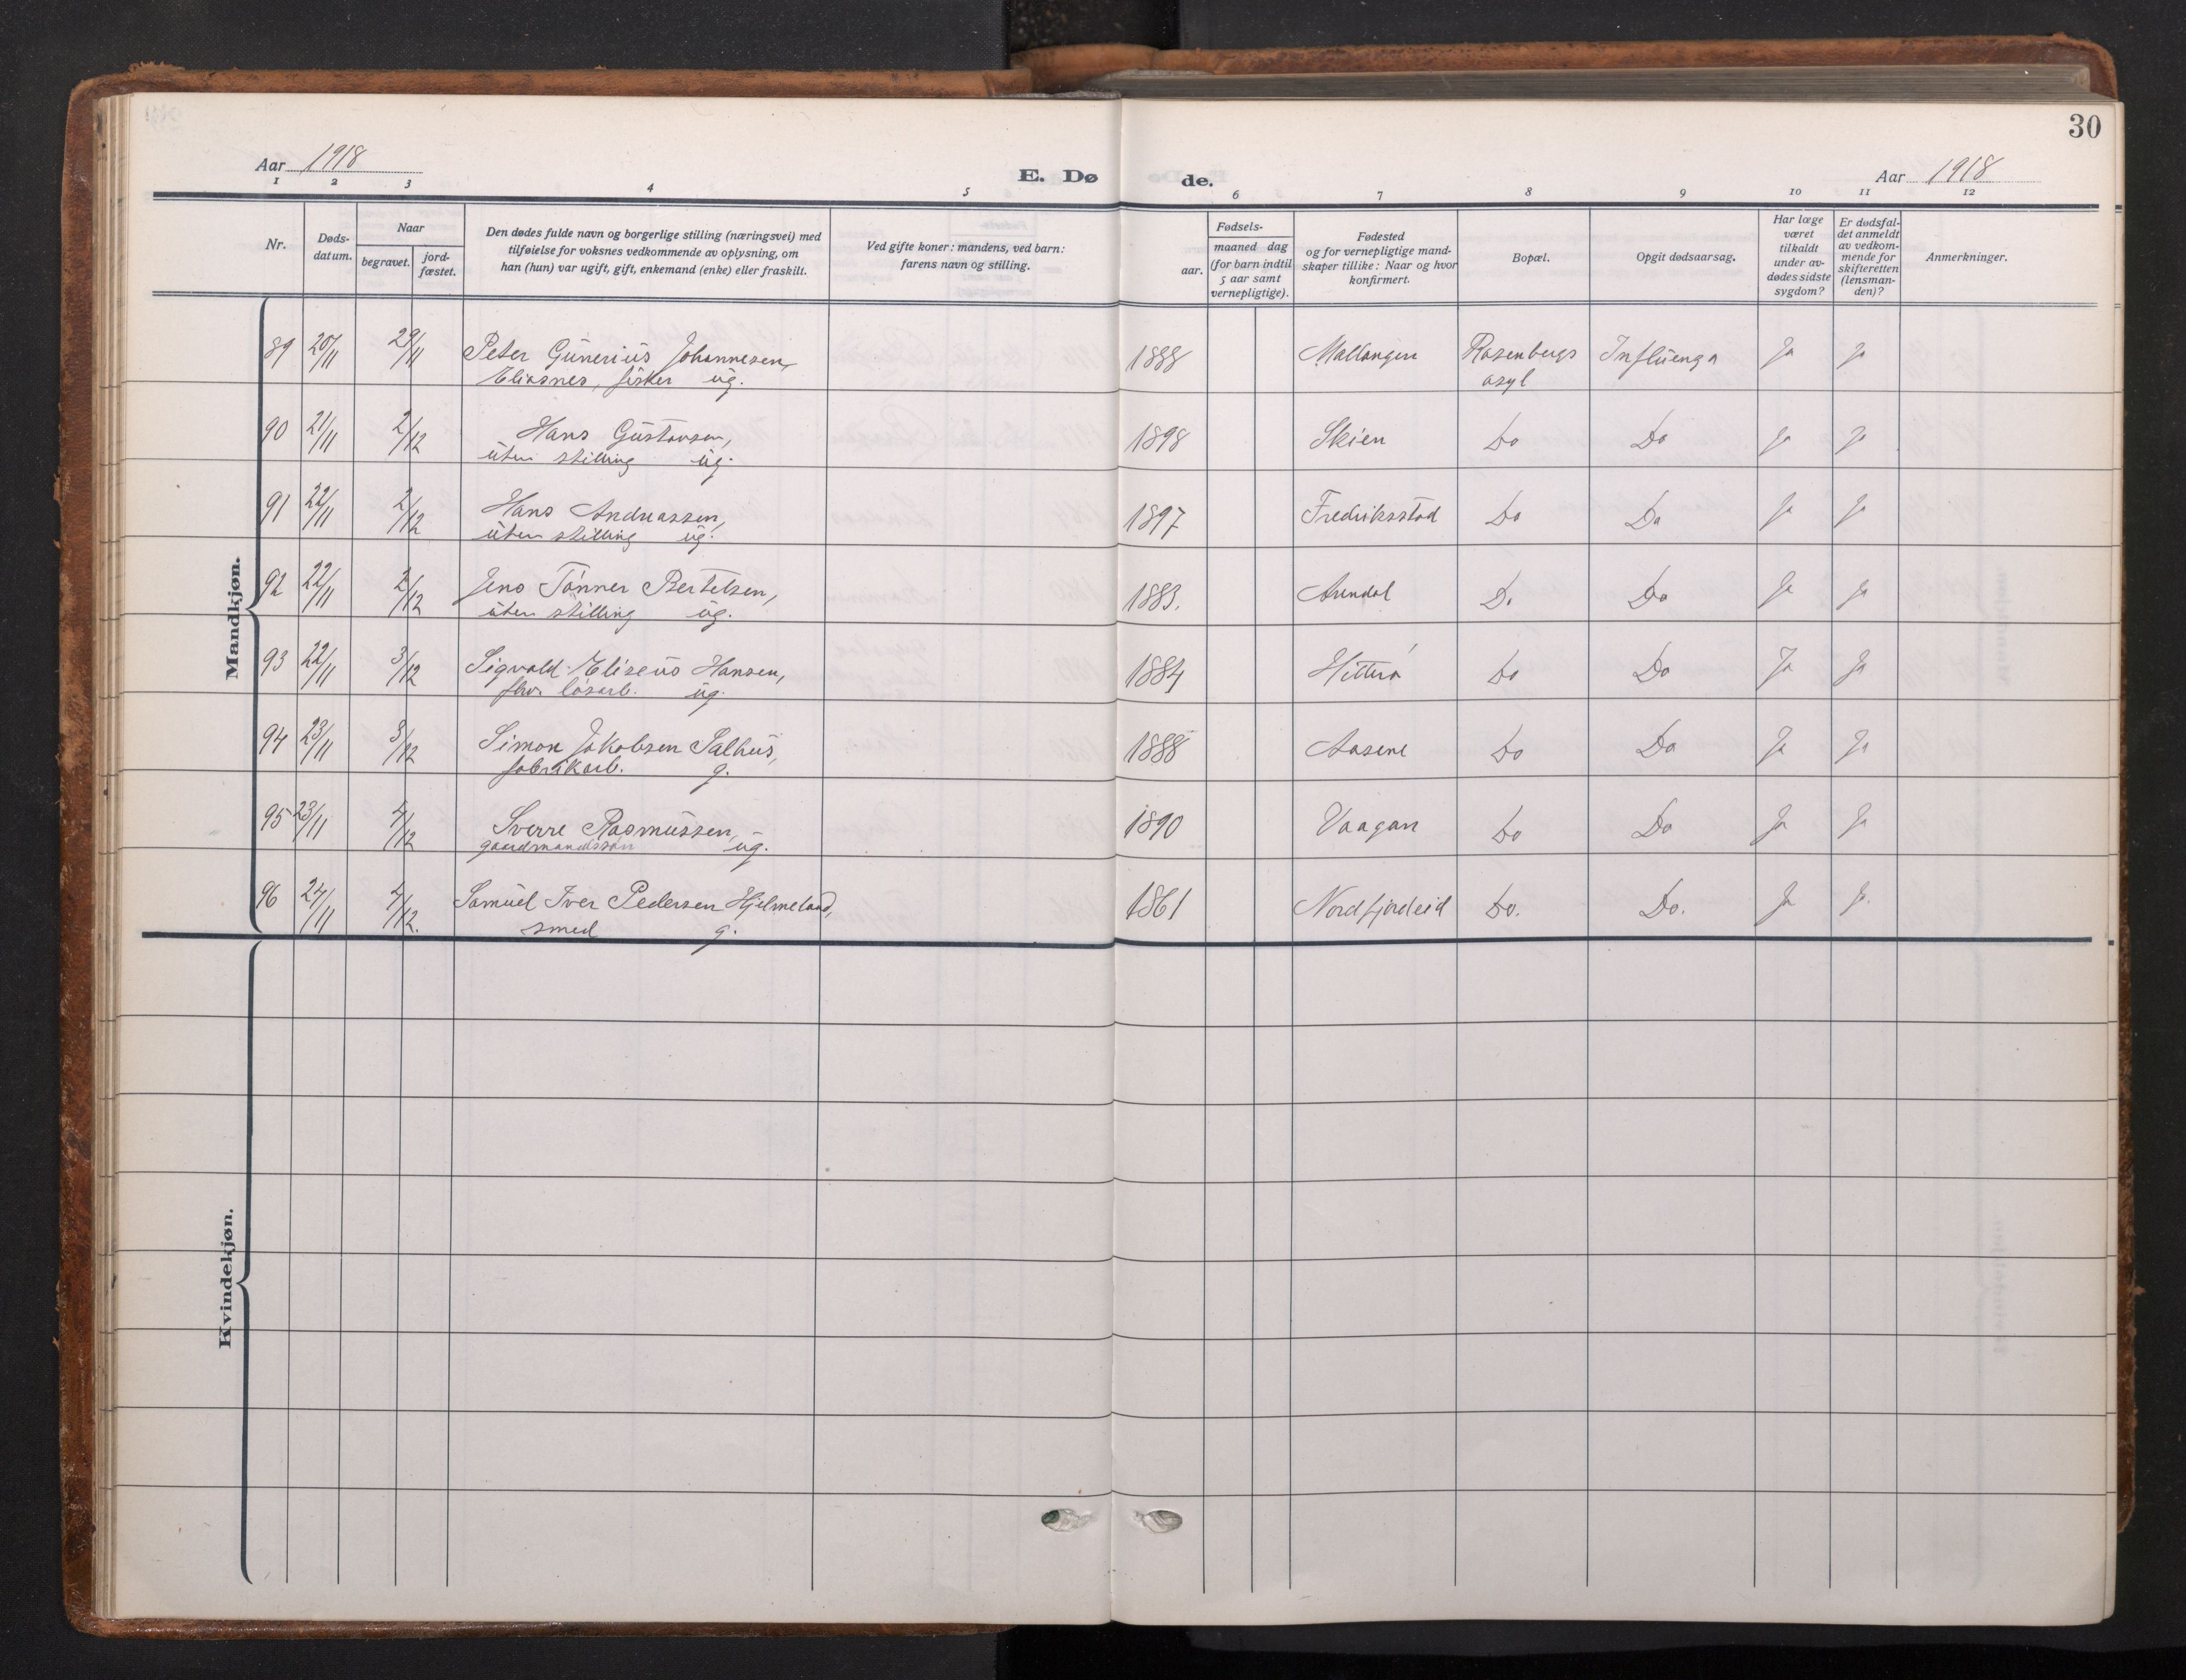 30
Aar 1918
E. Dø de.
Aar 1918
1 2 3 4 5 6 7 8 9 10 11 12
Nr.
Døds-
datum.
Naar
begravet.
jord-
fæstet.
Den dødes fulde navn og borgerlige stilling (næringsvei) med
tilføielse for voksnes vedkommende av oplysning, om
han (hun) var ugift, gift, enkemand (enke) eller fraskilt.
Ved gifte koner: mandens, ved barn:
farens navn og stilling.
Fødsels-
aar.
maaned dag
(for barn indtil
5 aar samt
vernepligtige).
Fødested
og for vernepligtige mand-
skaper tillike: Naar og hvor
konfirmert.
Bopæl.
Opgit dødsaarsag.
Har læge
været
tilkaldt
under av-
dødes sidste
sygdom?
Er dødsfal-
det anmeldt
av vedkom-
mende for
skifteretten
(lensman-
den)?
Anmerkninger.
Mandkjøn.
89 20/11 29/11 Peter Gunerius Johannesen, 1888 Mallangen Rosenbergs Influenza Ja Ja
Eliasnes, fisker ug. asyl
90 21/11 2/12 Hans Gustavsen, 1898 Skien Do Do Ja Ja
uten stilling ug.
91 22/11 2/12 Hans Andreassen, 1897 Fredriksstad Do Do Ja Ja
uten stilling ug.
92 22/11 2/12 Jens Tønner Bertelsen, 1883. Arendal Do Do Ja Ja
uten stilling ug.
93 22/11 3/12 Sigvald Eliseus Hansen, 1884 Hitterø Do Do Ja Ja
løsarb. ug.
94 23/11 3/12 Simon Jakobsen Salhus, 1888 Aasene Do Do Ja Ja
fabrikarb. g.
95 23/11 4/12 Sverre Rasmussen, 1890 Vaagan Do Do Ja Ja
gaardmandssøn ug.
96 24/11 4/12. Samuel Iver Pedersen Hjelmeland, 1861 Nordfjordeid Do. Do. Ja Ja
smed g.
Kvindekjøn.